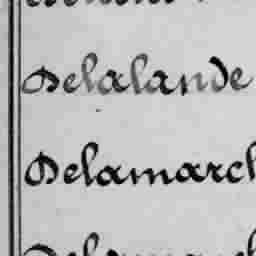 Delalande
Delamarch